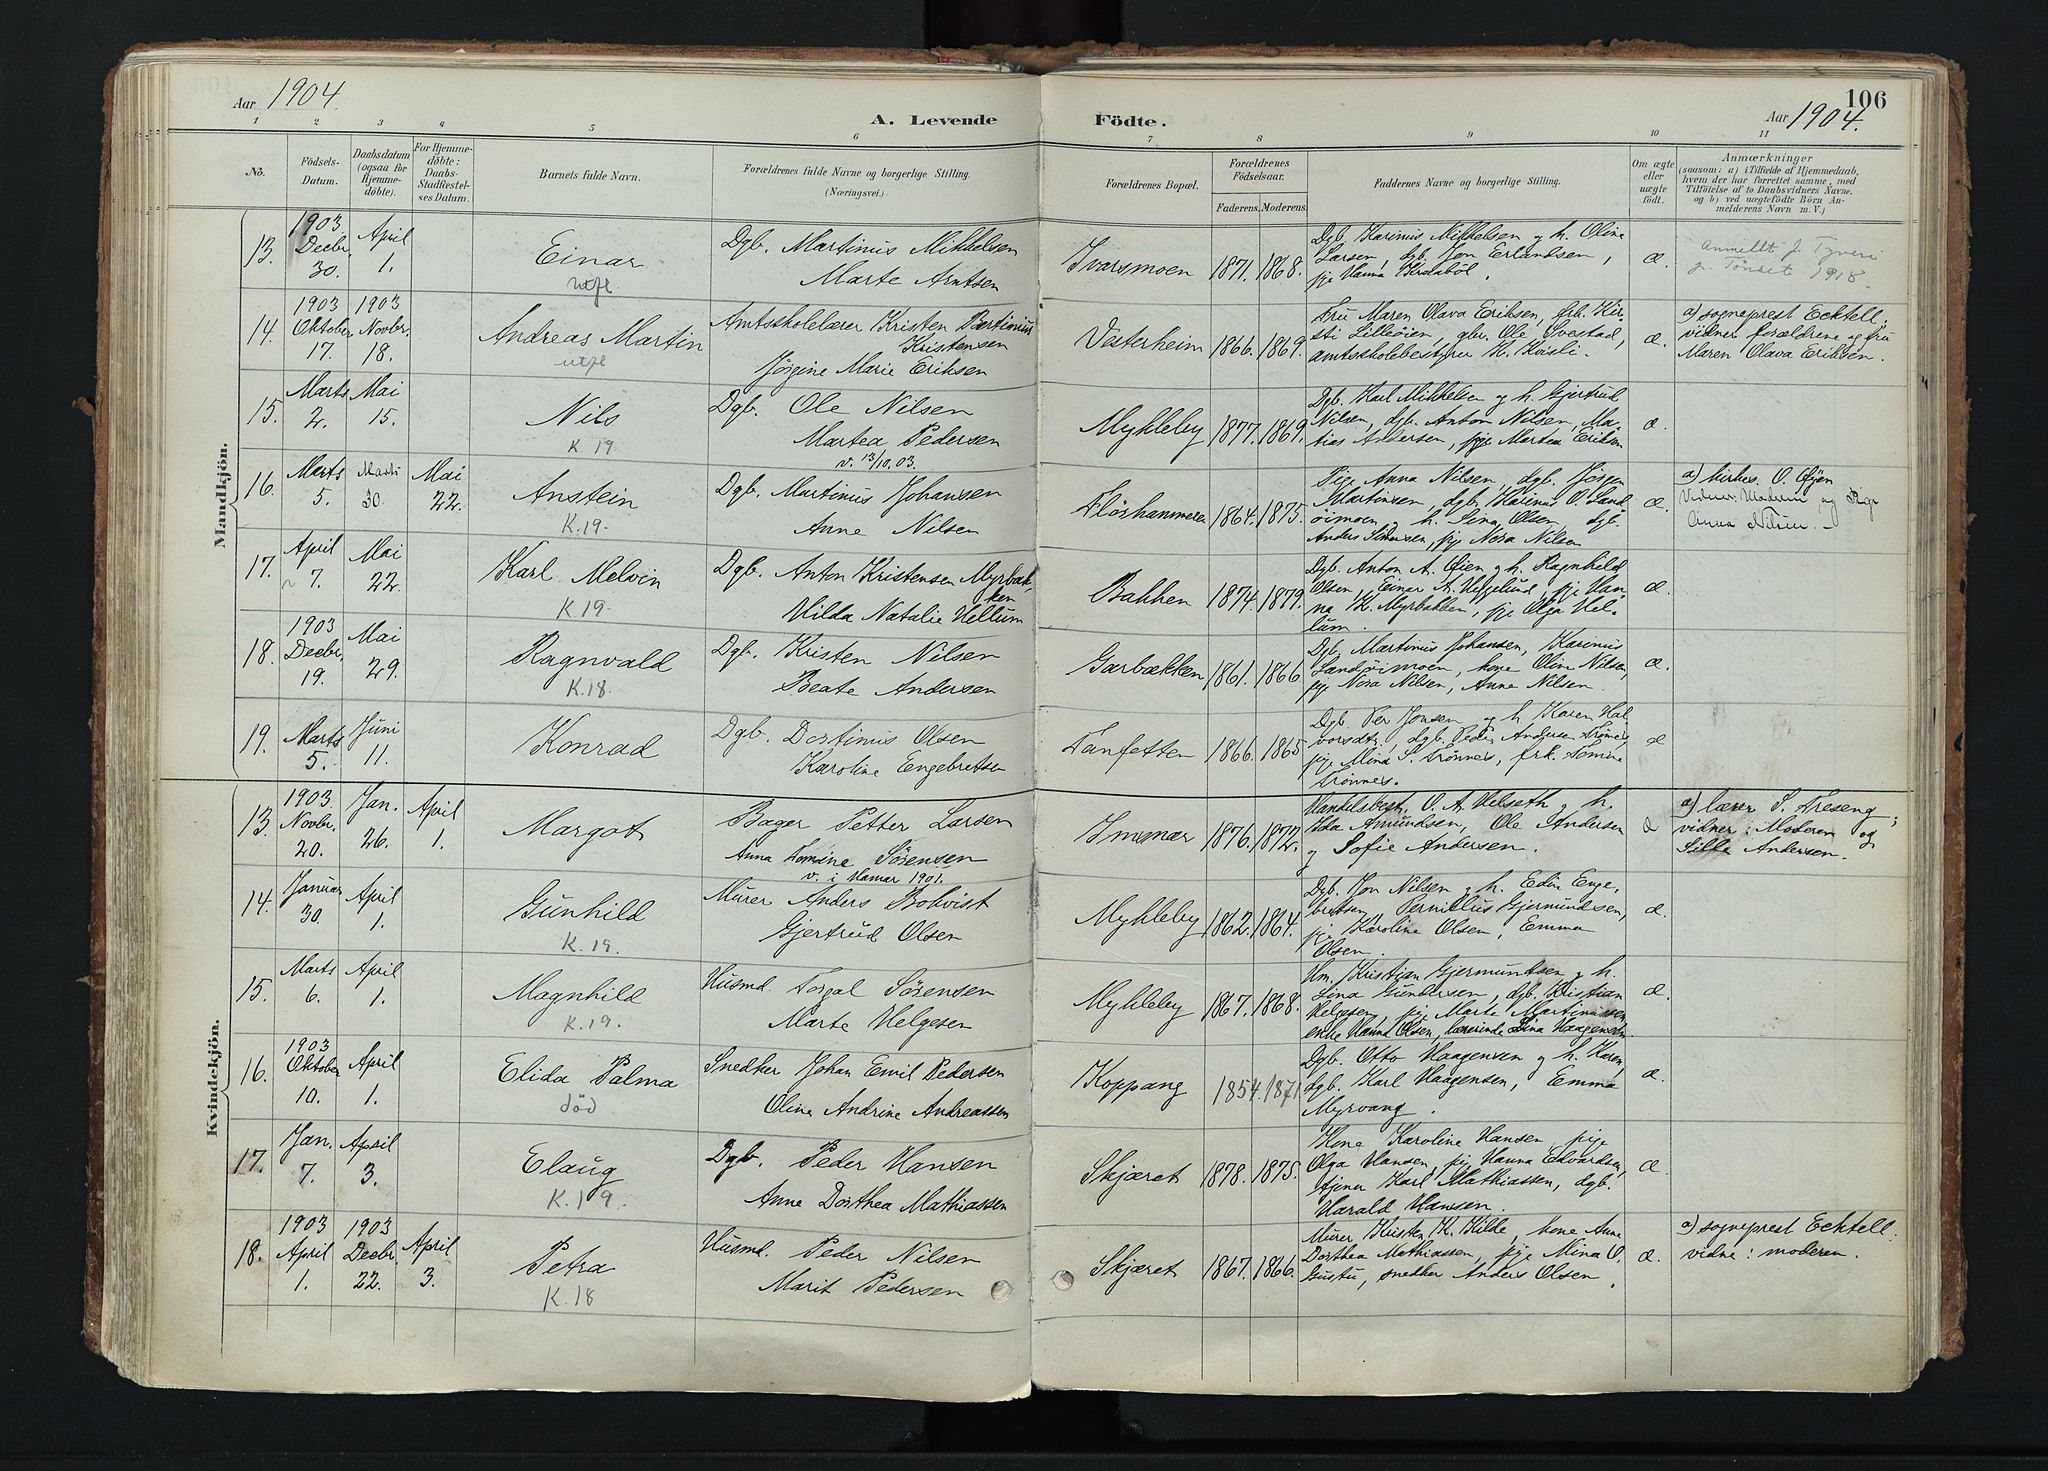 Aar 1904.
A. Levende
Födte.
106
Aar 1904.
1 2 3 4 5 6 7 8 9 10 11
No.
Födsels-
Datum.
Daabsdatum
(ogsaa for
Hjemme-
döbte).
For Hjemme-
döbte:
Daabs-
Stadfæstel-
ses Datum.
Barnets fulde Navn.
Forældrenes fulde Navne og borgerlige Stilling.
(Næringsvei.)
Forældrenes Bopæl.
Forældrenes
Födselsaar.
Faderens. Moderens.
Faddernes Navne og borgerlige Stilling.
Om ægte
eller
uægte
født.
Anmærkninger
(saasom: a) i Tilfælde af Hjemmedaab,
hvem der har forrettet samme, med
Tilföielse af to Daabsvidners Navne.
og b) ved uægtefödte Börn An-
melderens Navn m. V.)
Mandkjön.
13.
1903
Decbr.
30.
April
1.
Einar
utfl.
Dgb. Martinus Mikkelsen
Marte Arntsen
Ivarsmoen
1871. 1868.
Dgb. Karinus Mikkelsen og h. Oline
Larsen, dgb. Jon Erlandsen,
pje Hanna
æ.
Anmeldt f. Tyveri
fr. Tönset 1918.
14.
1903
Oktober
17.
1903
Novbr.
18.
Andreas Martin
utfl
Amtsskolelærer Kristen Bertinius
Kristensen
Jörgine Marie Eriksen
Vesterheim
1866. 1869.
Fru Maren Olava Eriksen, frk. Kir-
sti Lilleöien, gbr. Ole Sverstad,
amtsskolebestyrer K. Kvisli.
æ.
a) sogneprest Ecktell.
vidner forældrene og fru
Maren Olava Eriksen.
15.
Marts
2.
Mai
15.
Nils
K 19
Dgb. Ole Nilsen
Martea Pedersen
v. 13/10.03.
Mykleby
1877. 1869.
Dgb. Karl Mikkelsen og h. Gjertrud
Nilsen, dgb. Anton Nilsen, Ma-
tias Andersen, pje Martea Eriksen
æ.
16.
Marts
5.
Marts
30
Mai
22.
Anstein
K.19.
Dgb. Martinus Johansen
Anne Nilsen
Flöshammeren
1864. 1875.
Pige Anna Nilsen, dgb. Jörgen
Martinsen, dgb. Karinus O. Land-
öimoen og h. Lina Olsen, dgb.
Anders Simensen, pje Nora Nilsen
æ.
a) kirkes. O. Öyen
Vidner: Moderen og Pige
Anna Nilsen.
17.
April
7.
Mai
22.
Karl Melvin
K 19
Dgb. Anton Kristensen Myrbak-
ken
Hilda Natalie Hellum
Bakken
1874. 1879.
Dgb. Anton A. Öien og h. Ragnhild
Olsen, Einar A. Hegelund, pje Han-
na K. Myrbakken, pje Olga Hel-
lum.
æ.
18.
1903
Decbr.
19.
Mai
29.
Ragnvald
K.18.
Dgb. Kristen Nilsen
Beate Andersen
Garbækken
1861. 1866.
Dgb. Martinus Johansen, Karinus
Landöimoen, kone Oline Nilsen,
pje Nora Nilsen, Anne Nilsen.
æ.
19.
Marts
5.
Juni
11.
Konrad
Dgb. Dortinus Olsen
Karoline Engebretsen
Fanfetten
1866. 1865
Dgb. Per Jonsen og h. Karen Hal-
vorsdtr., dgb. Peder Andersen Trönnes,
pje Mina S. Trönnes, frk. Tomine
Trönnes.
æ
Kvindekjön.
13.
1903
Novbr.
20.
Jan.
26.
April
1.
Margot
Bager Petter Larsen
Anna Tomine Sörensen
v. i Hamar 1901.
Immar
1876. 1872.
Handelsbest. O. A. Helseth og h.
Ida Amundsen, Ole Andersen
og Sofie Andersen.
æ
a) lærer S. Treseng;
vidner: Moderen og
Silla Andersen.
14.
Januar
30.
April
1.
Gunhild
K. 19.
Murer Anders Bokvist
Gjertrud Olsen
Mykleby
1862. 1864.
Dgb. Jon Nilsen og h. Edin Enge-
bretsen, Pernillus Gjermundsen,
pje Karoline Olsen, Emma
Olsen.
æ.
15.
Marts
6.
April
1.
Magnhild
K.19.
Husmd. Torgal Sörensen
Marte Helgesen
Mykleby
1867. 1868.
Hm. Kristian Gjermundsen og h.
Lina Gundersen, dgb. Kristian
Helgesen, pje Marte Martinussen
enke Hanna Olsen, lærerinde Lina Haagensen
æ.
16.
1903
Oktober
10.
April
1.
Elida Palma
död
Snedker Johan Emil Pedersen
Oline Andrine Andreassen
Koppang
1854. 1871.
Dgb. Otto Haagensen og h. Karen,
dgb. Karl Haagensen, Emma
Myrvang.
æ.
17.
Jan.
7.
April
3.
Elaug
K.19.
Dgb. Peder Hansen
Anne Dorthea Mathiassen
Skjæret
1878. 1875.
Kone Karoline Hansen, pije
Olga Hansen, pije Hanna Edvardsen,
tjener Karl Mathiassen, dgb.
Harald Hansen.
æ.
18.
1903
April
1.
1903
Decbr.
22.
April
3.
Petra
K.18
Husmd. Peder Nilsen
Marit Pedersen
Skjæret
1867. 1866.
Murer Kristen K. Kilde, kone Anne
Dorthea Mathiassen, pije Mina O.
Gustu, snedker Anders Olsen.
æ.
a) sogneprest Ecktell.
vidne: moderen.